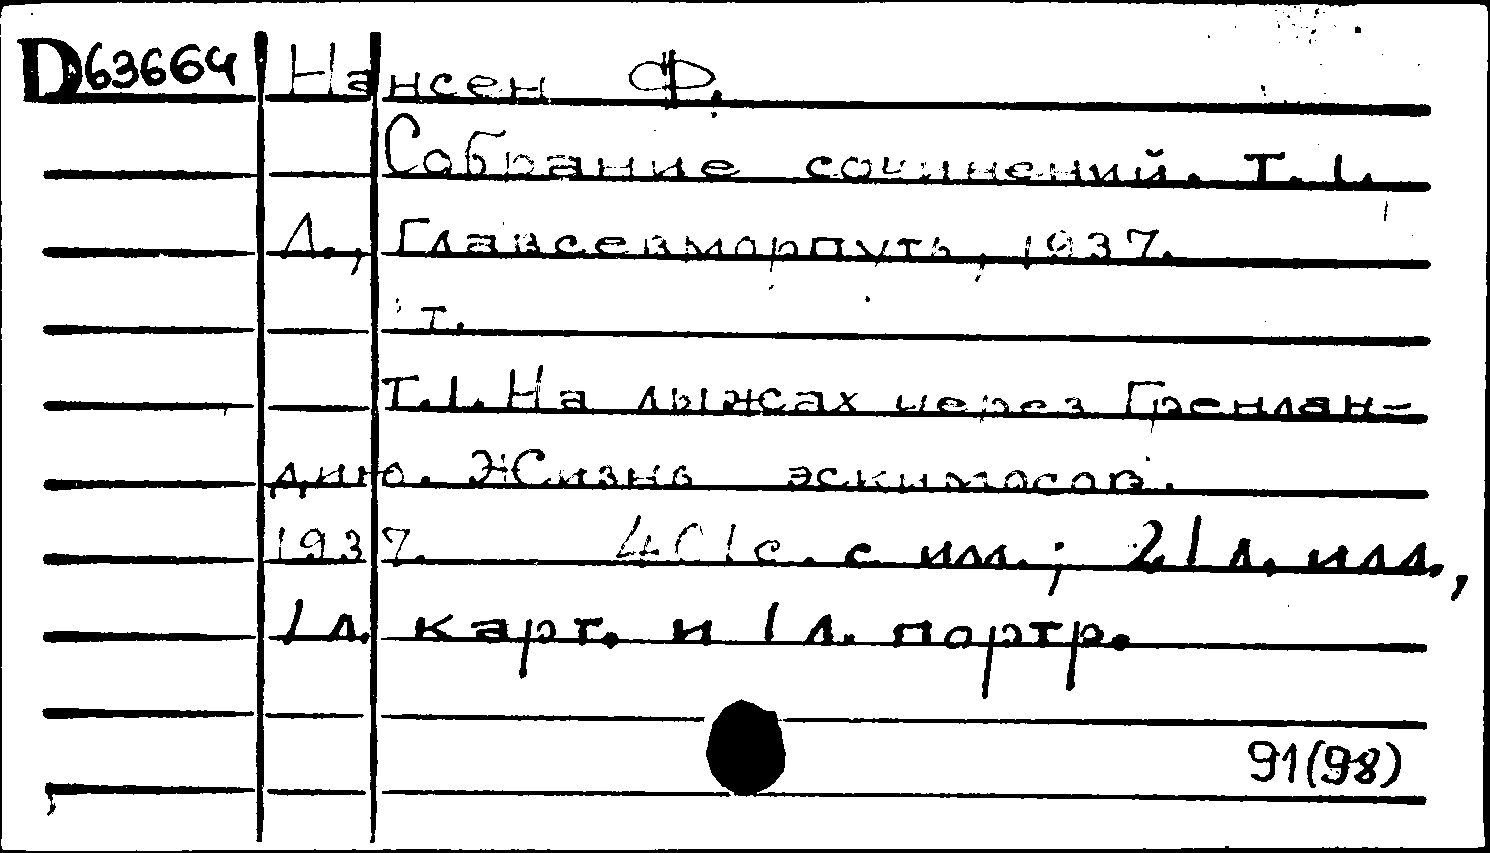 D63664 Нансен Ф.
Собрание сочинений. Т. 1.
Л., Главсевморпуть, 1937.
т.
Т.1. На лыжах через Гренлан-
дию. Жизнь эскимосов.
1937. 401с. с илл.; 21 л. илл.,
1 л. карт. и 1 л. портр.
91(98)